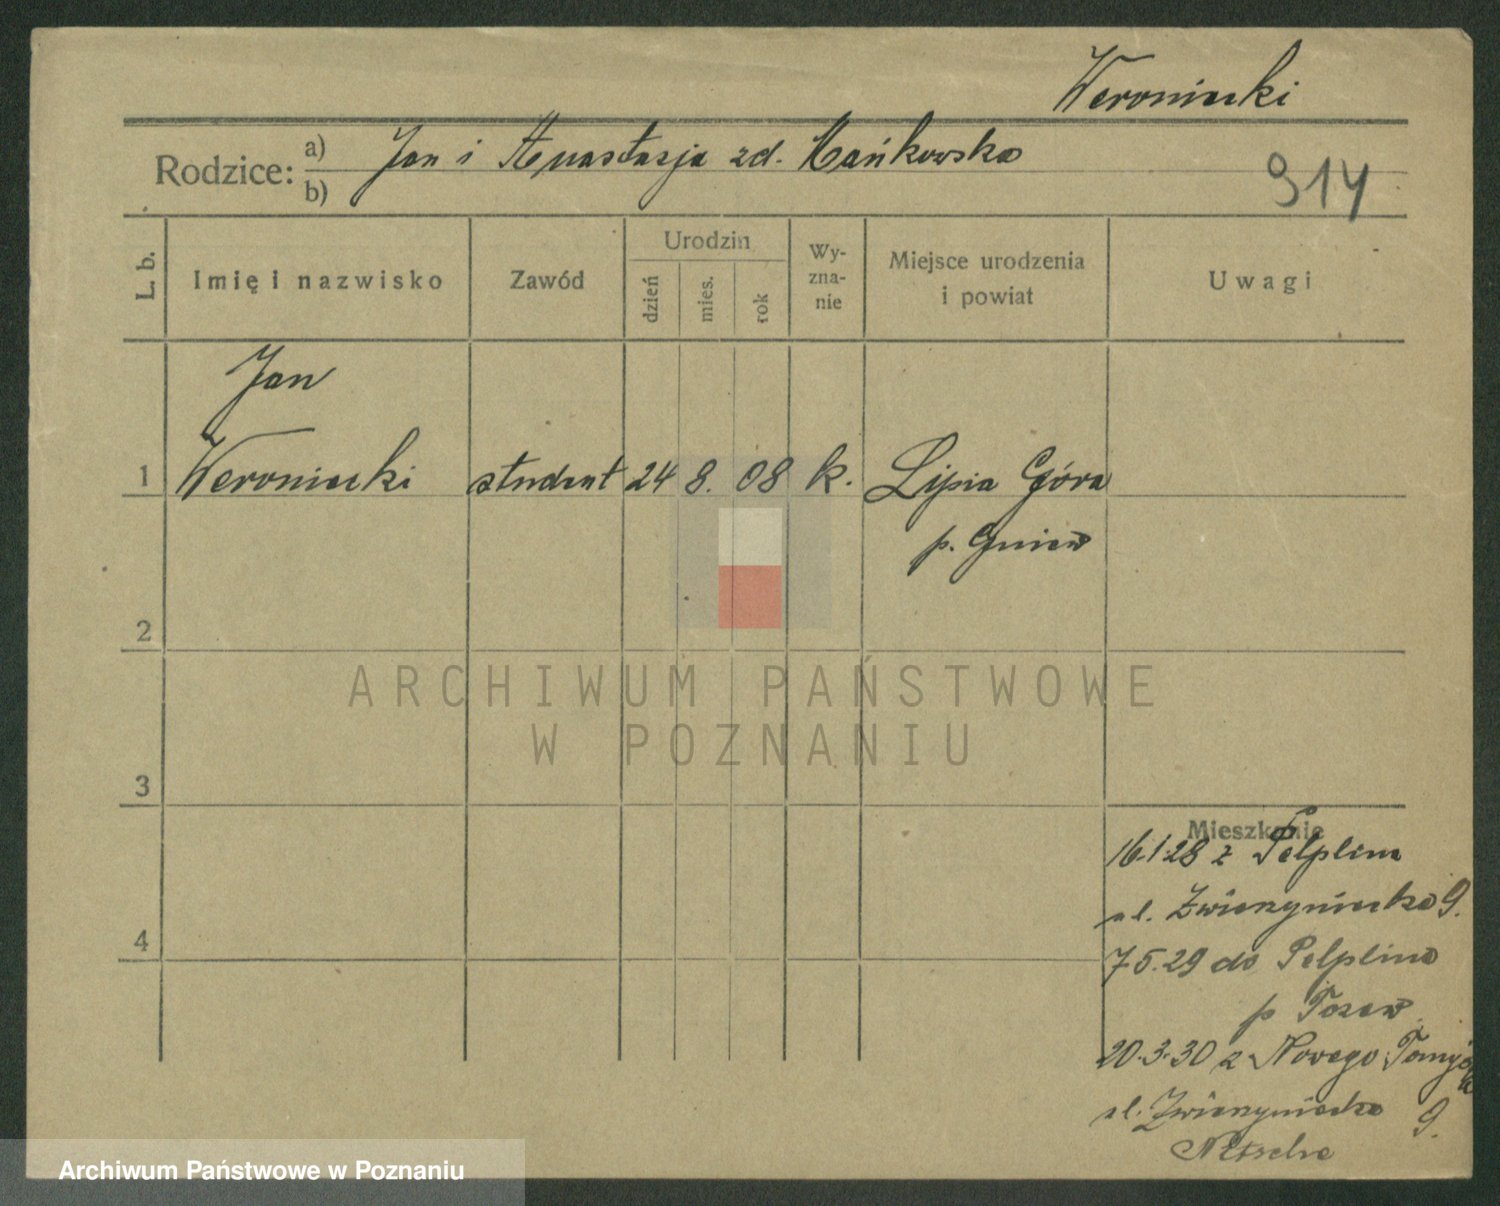 Weroniecki
Rodzice: a) Jan i Anastazja zd. Mańkowska
b)
914
L. b.
Imię i nazwisko
Zawód
Urodzin
dzień
mies.
rok
Wy-
zna-
nie
Miejsce urodzenia
i powiat
Uwagi
Jan
1 Weroniecki student 24 8. 08 k. Lipia Góra
p. Gniew
2
ARCHIWUM PAŃSTWOWE
W POZNANIU
3
Mieszkanie
16.1.28 z Pelplina
ul. Zwierzyniecka 9.
4
7.5.29 do Pelplina
p Tczew
20.3.30 z Nowego Tomyśla
ul. Zwierzyniecka 9.
Archiwum Państwowe w Poznaniu